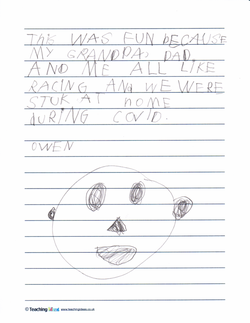 THIS WAS FUN BECAUSE
MY GRANDDA, DAD
AND ME ALL LIKE
RACING AND WE WERE
STUK AT HOME
DURING COVID.
OWEN
© Teaching Ideas www.teachingideas.co.uk